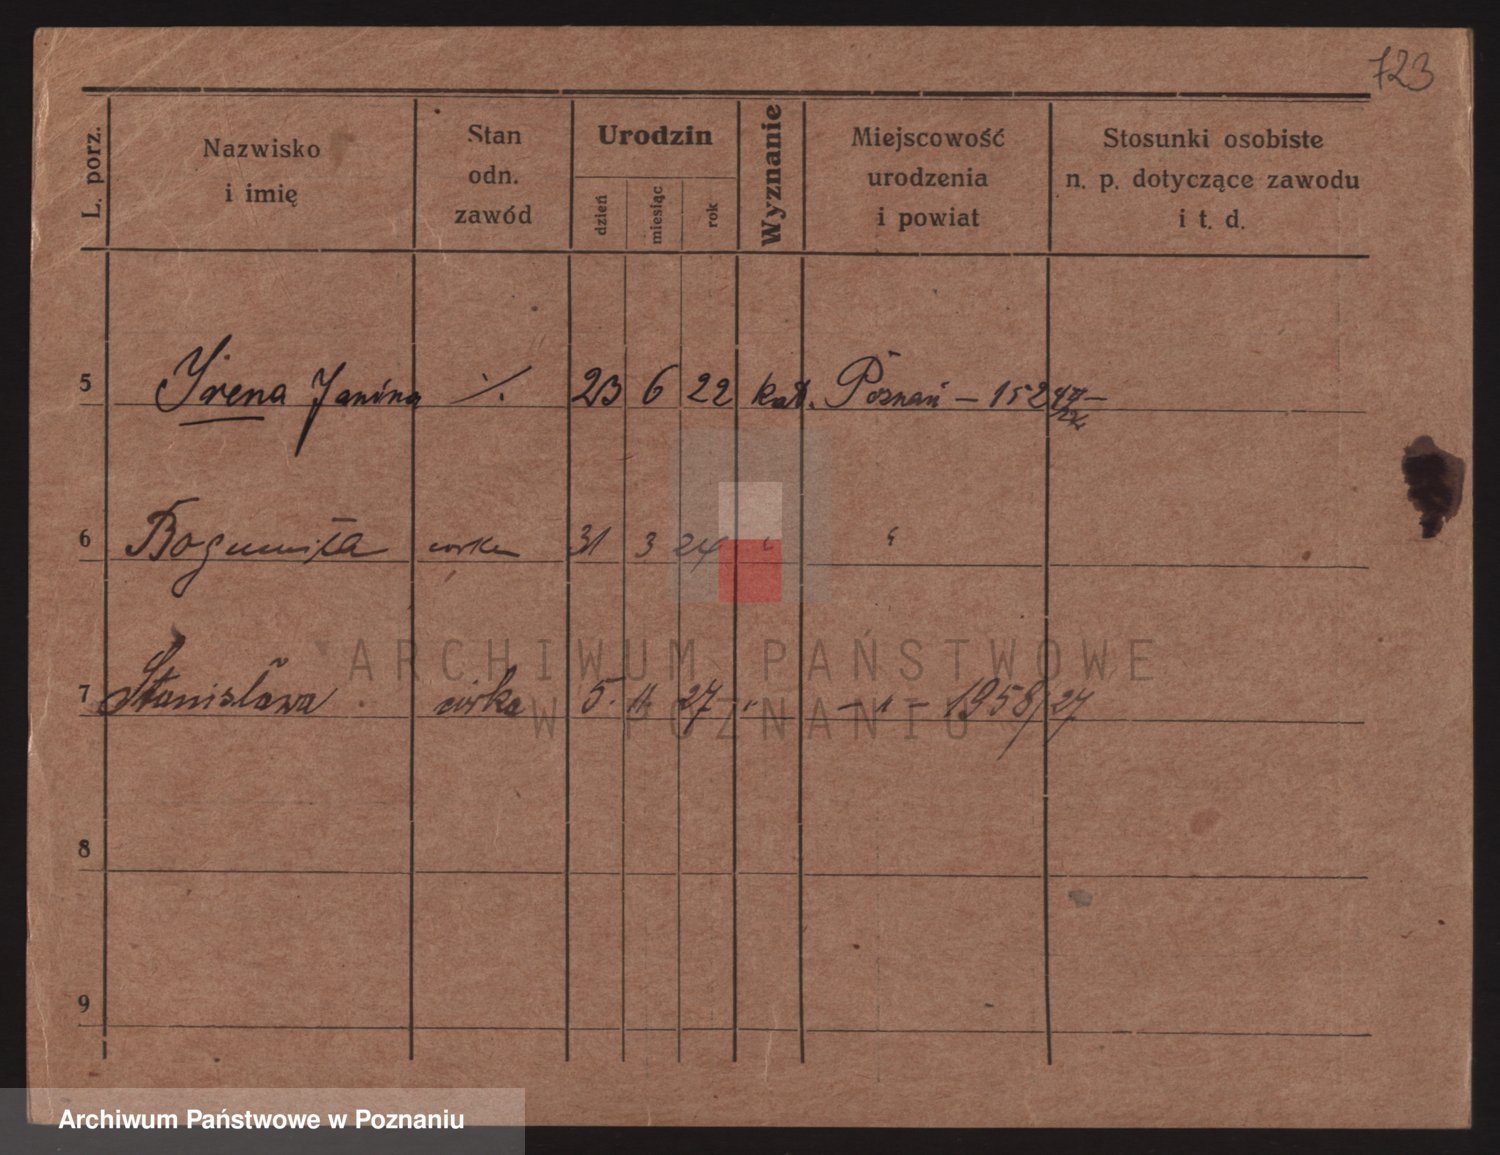 723
L. porz.
Nazwisko
i imię
Stan
odn.
zawód
Urodzin
dzień
miesiąc
rok
Wyznanie
Miejscowość
urodzenia
i powiat
Stosunki osobiste
n. p. dotyczące zawodu
i t. d.
5 Irena Janina ./. 23 6 22 kat. Poznań –
6 Bogumiła córka 31 3 24 " "
7 Stanisława córka 5. 11. 27 " – " – 1958/27
8
9
ARCHIWUM PAŃSTWOWE
W POZNANIU
Archiwum Państwowe w Poznaniu